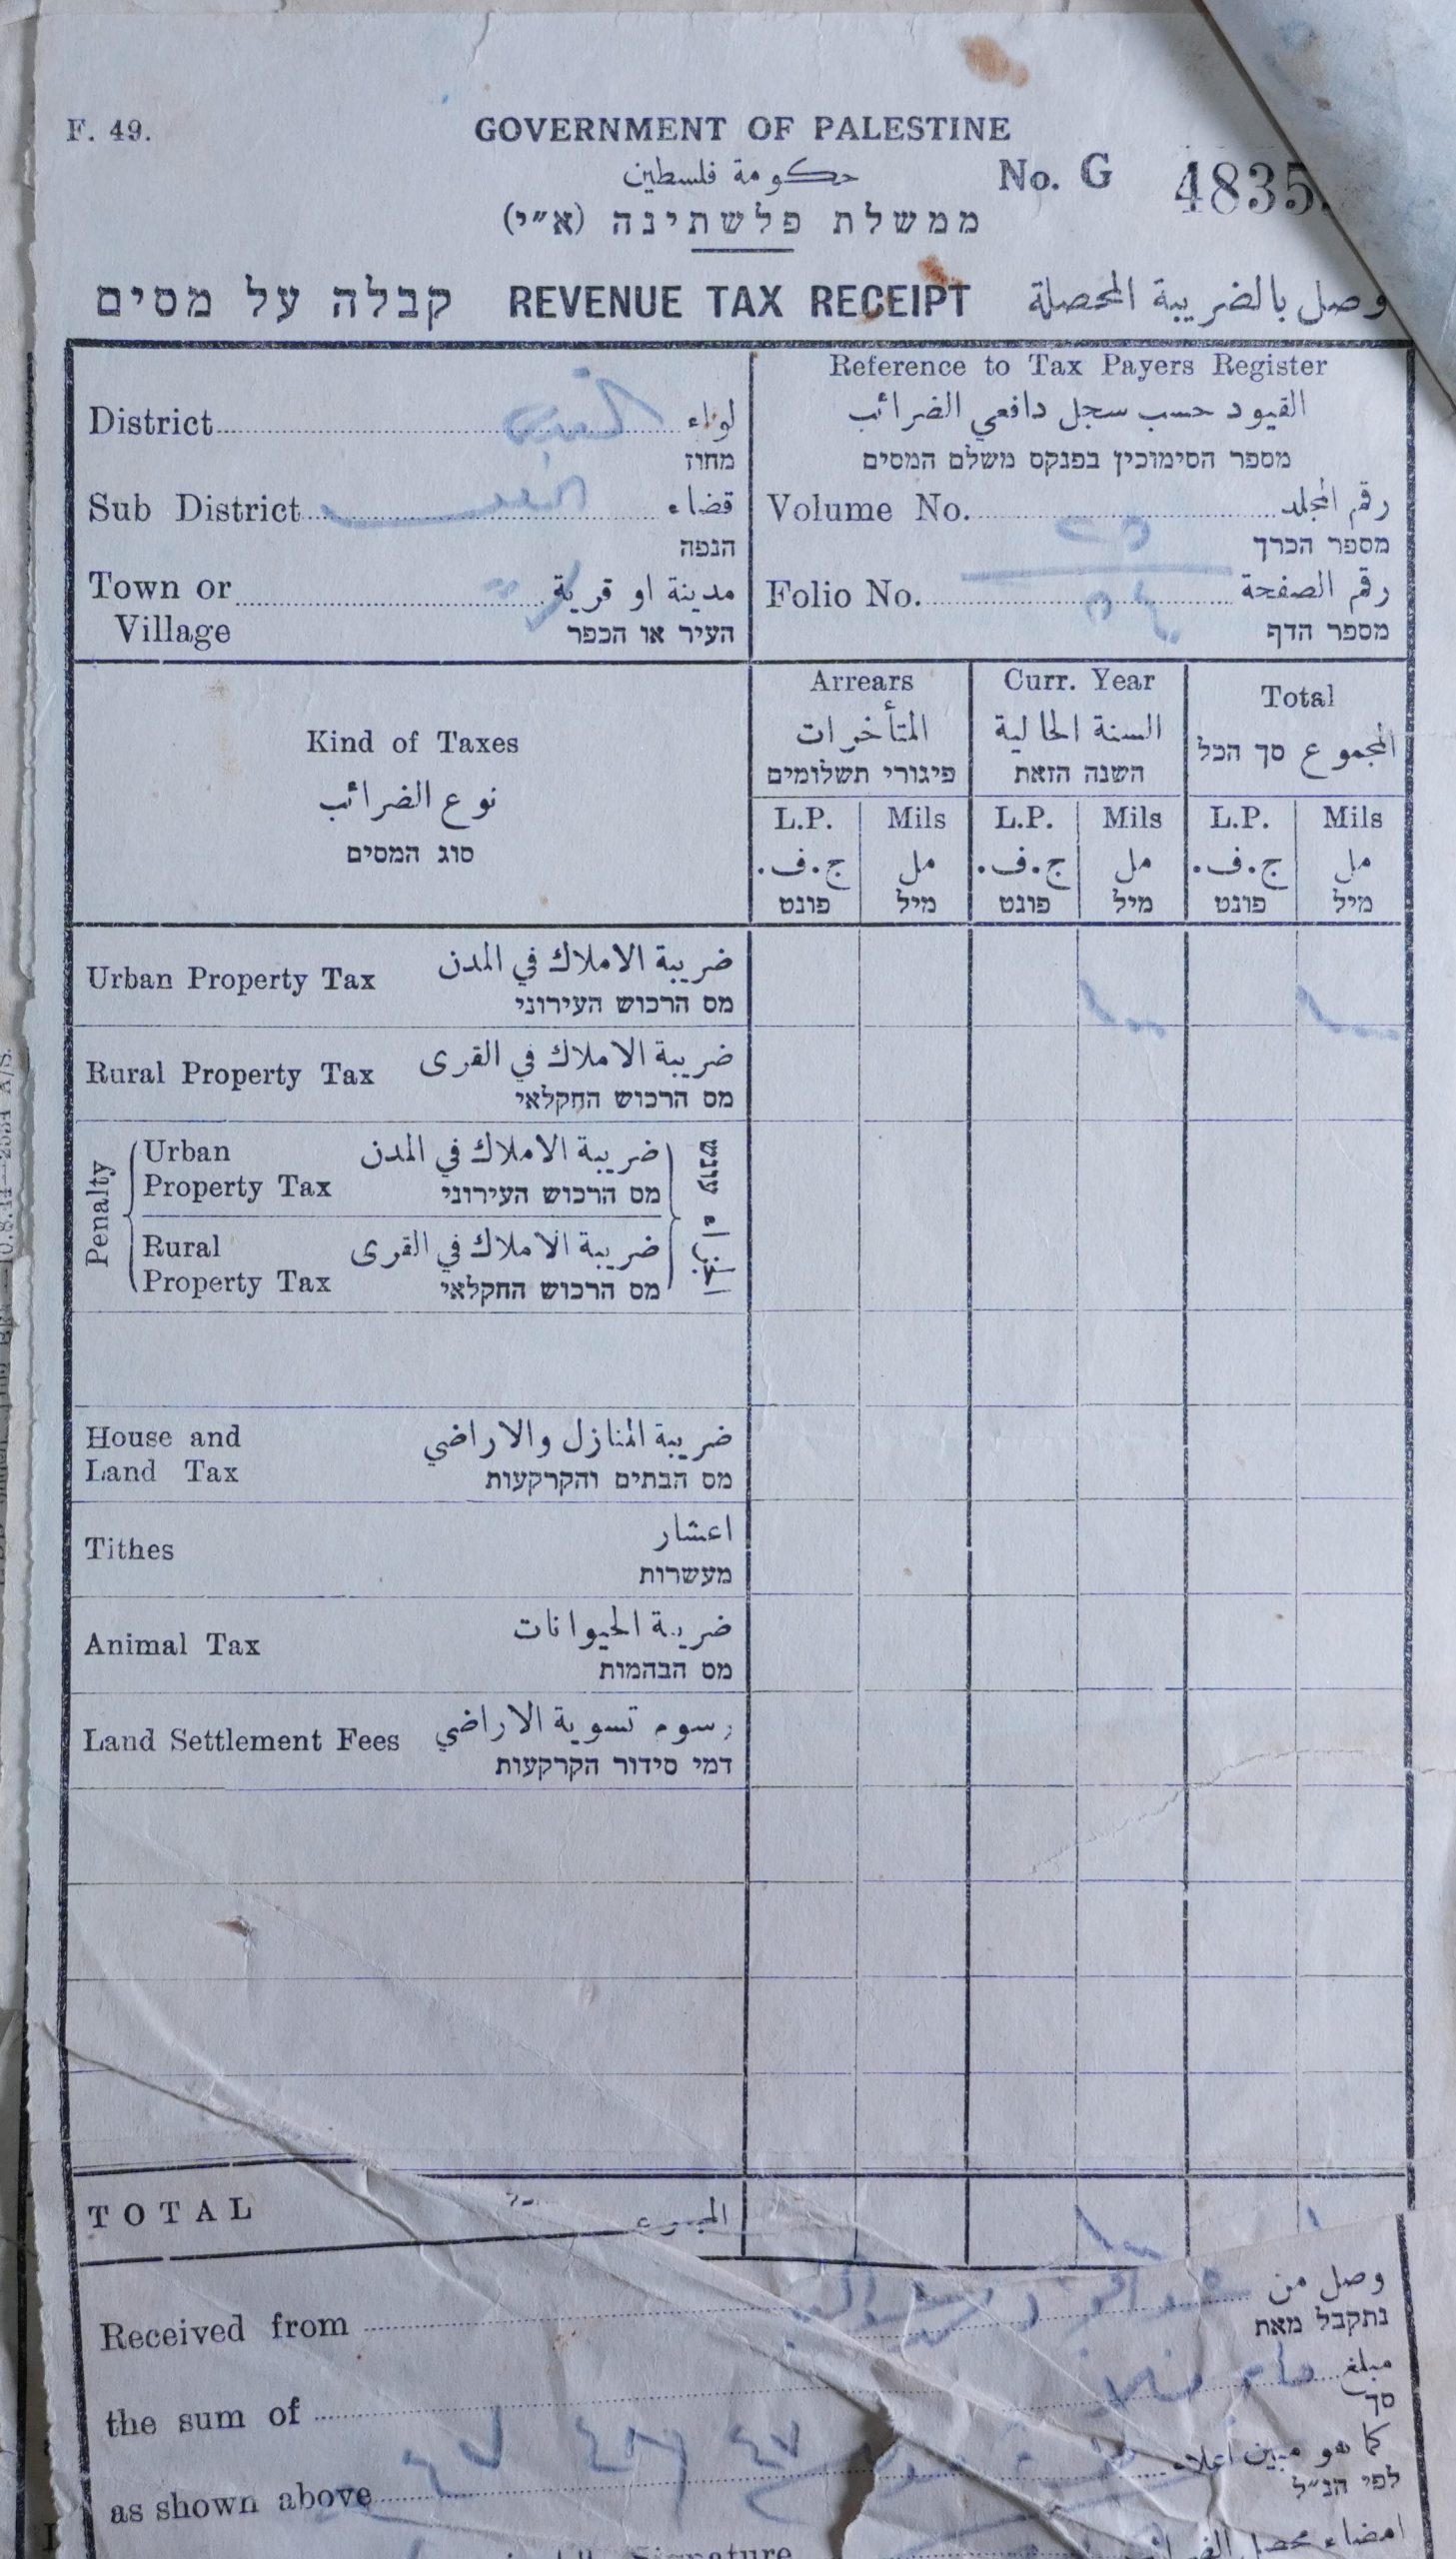 F. 49.
GOVERNMENT OF PALESTINE
حكومة فلسطين
No. G 4835
ממשלת פלשתינה (א״י)
קבלה על מסים REVENUE TAX RECEIPT وصل بالضريبة المحصلة
District لواء
מחוז
Sub District قضاء
הנפה
Town or Village مدينة او قرية
העיר או הכפר
Reference to Tax Payers Register
القيود حسب سجل دافعي الضرائب
מספר הסימוכין בפנקס משלם המסים
Volume No. رقم المجلد
מספר הכרך
Folio No. رقم الصفحة
מספר הדף
Kind of Taxes
نوع الضرائب
סוג המסים
Arrears
المتأخرات
פיגורי תשלומים
Curr. Year
السنة الحالية
השנה הזאת
Total
المجموع סך הכל
L.P. Mils L.P. Mils L.P. Mils
ج.ف. مل ج.ف. مل ج.ف. مل
פונט מיל פונט מיל פונט מיל
Urban Property Tax ضريبة الاملاك في المدن
מס הרכוש העירוני
Rural Property Tax ضريبة الاملاك في القرى
מס הרכוש החקלאי
Penalty
Urban Property Tax ضريبة الاملاك في المدن
מס הרכוש העירוני
Rural Property Tax ضريبة الاملاك في القرى
מס הרכוש החקלאי
עונש
House and Land Tax ضريبة المنازل والاراضي
מס הבתים והקרקעות
Tithes اعشار
מעשרות
Animal Tax ضريبة الحيوانات
מס הבהמות
Land Settlement Fees رسوم تسوية الاراضي
דמי סידור הקרקעות
TOTAL المجموع
Received from وصل من
נתקבל מאת
the sum of مبلغ
סך
as shown above كما هو مبين اعلاه
לפי הנ״ל
Signature امضاء محصل